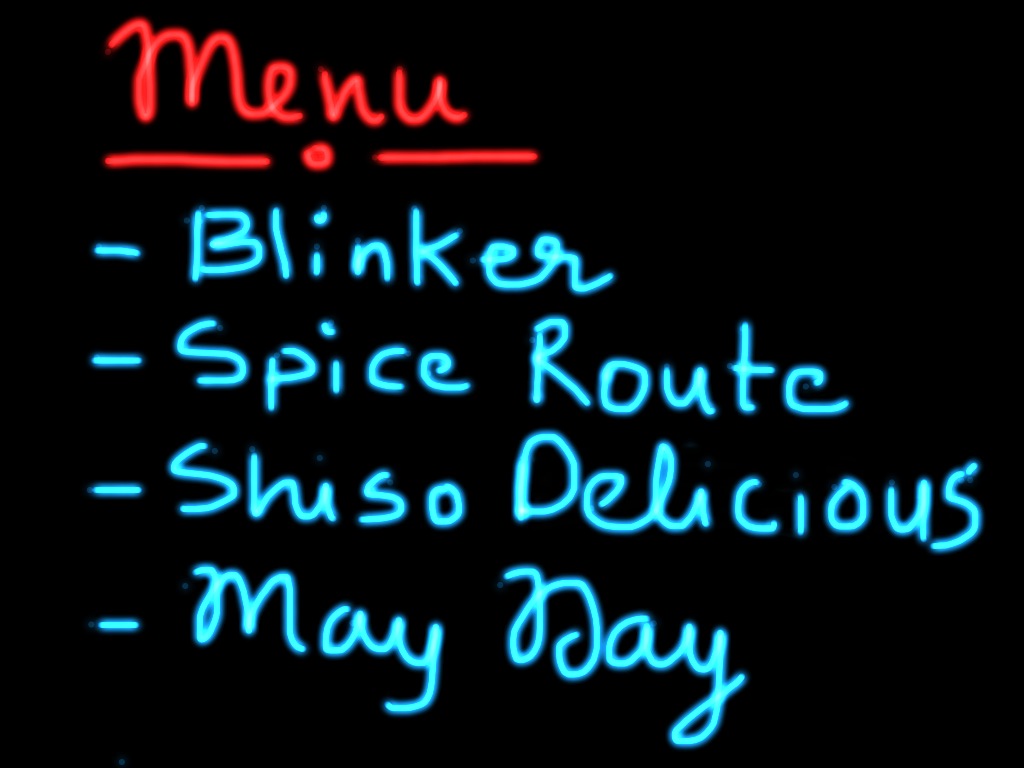 Menu
- Blinker
- Spice Route
- Shiso Delicious
- May Day